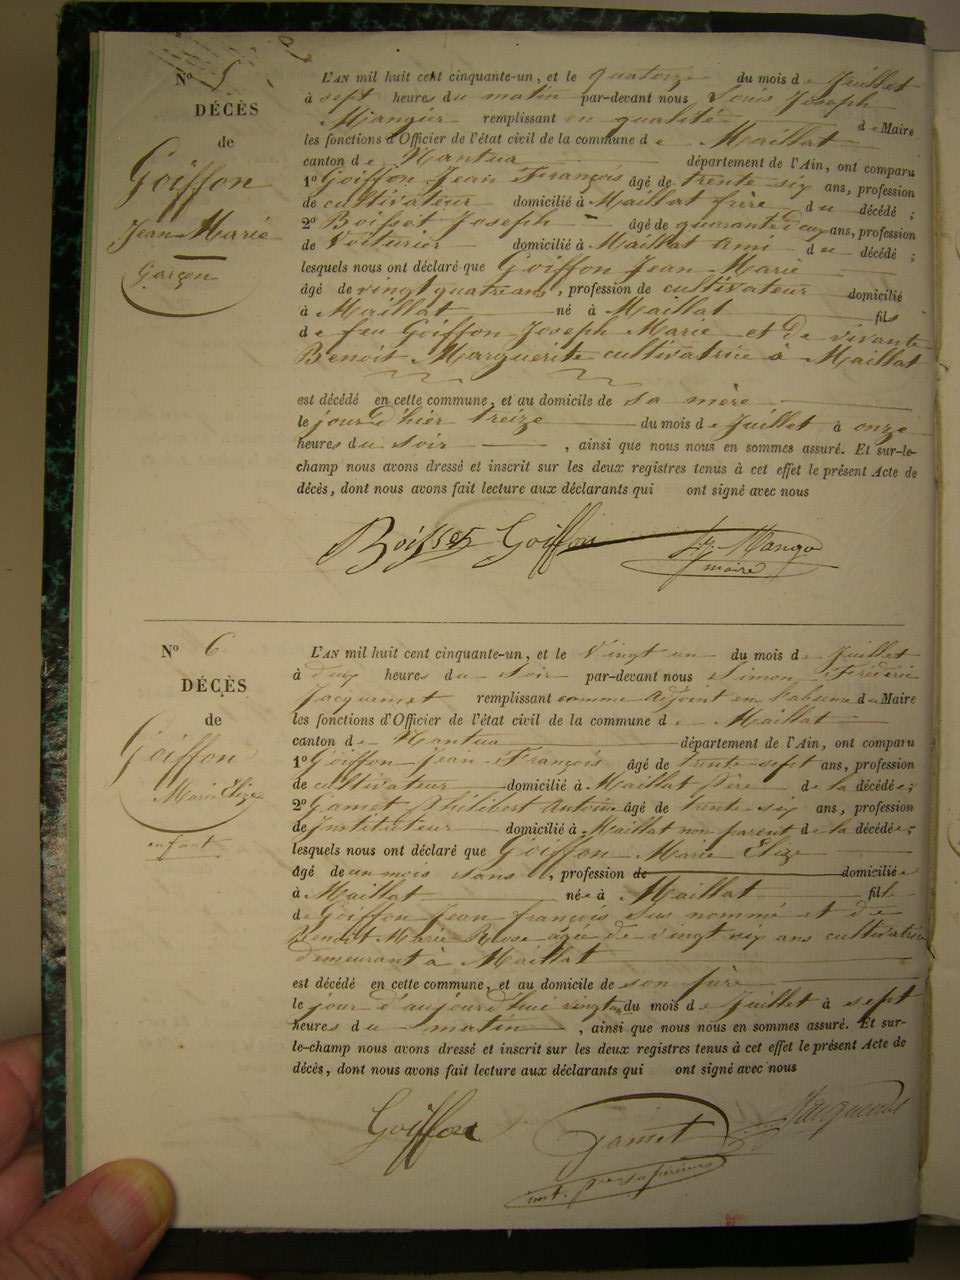 N° 5
DÉCÈS
de
Goiffon
Jean Marie
Garçon
L'AN mil huit cent cinquante-un, et le quatorze du mois de Juillet
à sept heures du matin par-devant nous Louis Joseph
remplissant en qualité de Maire
les fonctions d'Officier de l'état civil de la commune de Maillat
canton de Nantua département de l'Ain, ont comparu
1° Goiffon Jean François âgé de trente six ans, profession
de cultivateur domicilié à Maillat frère du décédé ;
2° Boisset Joseph âgé de quarante deux ans, profession
de Voiturier domicilié à Maillat ami du décédé ;
lesquels nous ont déclaré que Goiffon Jean Marie
âgé de vingt quatre ans, profession de cultivateur domicilié
à Maillat né à Maillat fils
de feu Goiffon Joseph Marie et de vivante
Benoit Marguerite cultivatrice à Maillat
est décédé en cette commune, et au domicile de sa mère
le jour d'hier treize du mois de Juillet à onze
heures du soir , ainsi que nous nous en sommes assuré. Et sur-le-
champ nous avons dressé et inscrit sur les deux registres tenus à cet effet le présent Acte de
décès, dont nous avons fait lecture aux déclarants qui ont signé avec nous
Boisset Goiffon
maire
N° 6
DÉCÈS
de
Goiffon
Marie Elize
enfant
L'AN mil huit cent cinquante-un, et le Vingt un du mois de Juillet
à deux heures du Soir par-devant nous Simon Fréderic
Jacquemet remplissant comme adjoint en l'absence du Maire
les fonctions d'Officier de l'état civil de la commune de Maillat
canton de Nantua département de l'Ain, ont comparu
1° Goiffon Jean François âgé de trente sept ans, profession
de cultivateur domicilié à Maillat Père de la décédée ;
2° Gamet Philibert Antoine âgé de trente six ans, profession
de Instituteur domicilié à Maillat non parent de la décédée ;
lesquels nous ont déclaré que Goiffon Marie Elize
âgé de un mois sans , profession de domiciliée
à Maillat née à Maillat fille
de Goiffon Jean françois sus nommé et de
Benoit Marie Rose âgée de vingt six ans cultivatrice
demeurant à Maillat
est décédé en cette commune, et au domicile de son père
le jour d'aujourd'hui vingt un du mois de Juillet à sept
heures du matin , ainsi que nous nous en sommes assuré. Et sur-
le-champ nous avons dressé et inscrit sur les deux registres tenus à cet effet le présent Acte de
décès, dont nous avons fait lecture aux déclarants qui ont signé avec nous
Goiffon Gamet Jacquemet